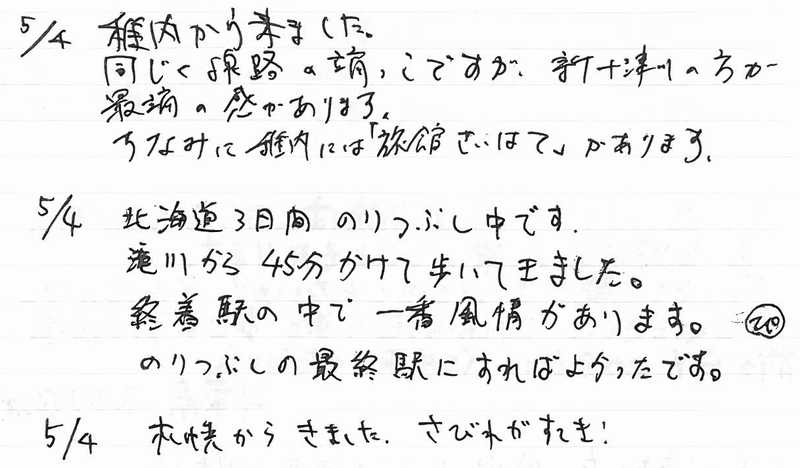 5/4 稚内から来ました。
同じく線路の端っこですが、新十津川の方が
最端の感があります。
ちなみに稚内には「旅館さいはて」があります。
5/4 北海道3日間のりつぶし中です。
滝川から45分かけて歩いて来ました。
終着駅の中で一番風情があります。
のりつぶしの最終駅にすればよかったです。
5/4 札幌からきました。さびれがすてき!